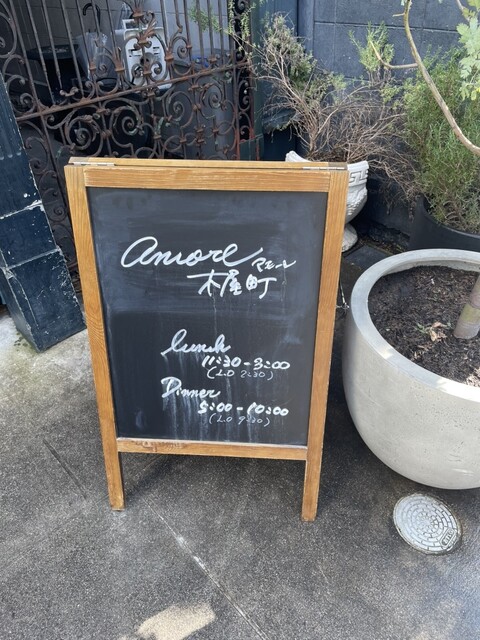 amore アモーレ
木屋町
Lunch
11:30-3:00
(L.O 2:30)
Dinner
5:00-10:00
(L.O 9:30)